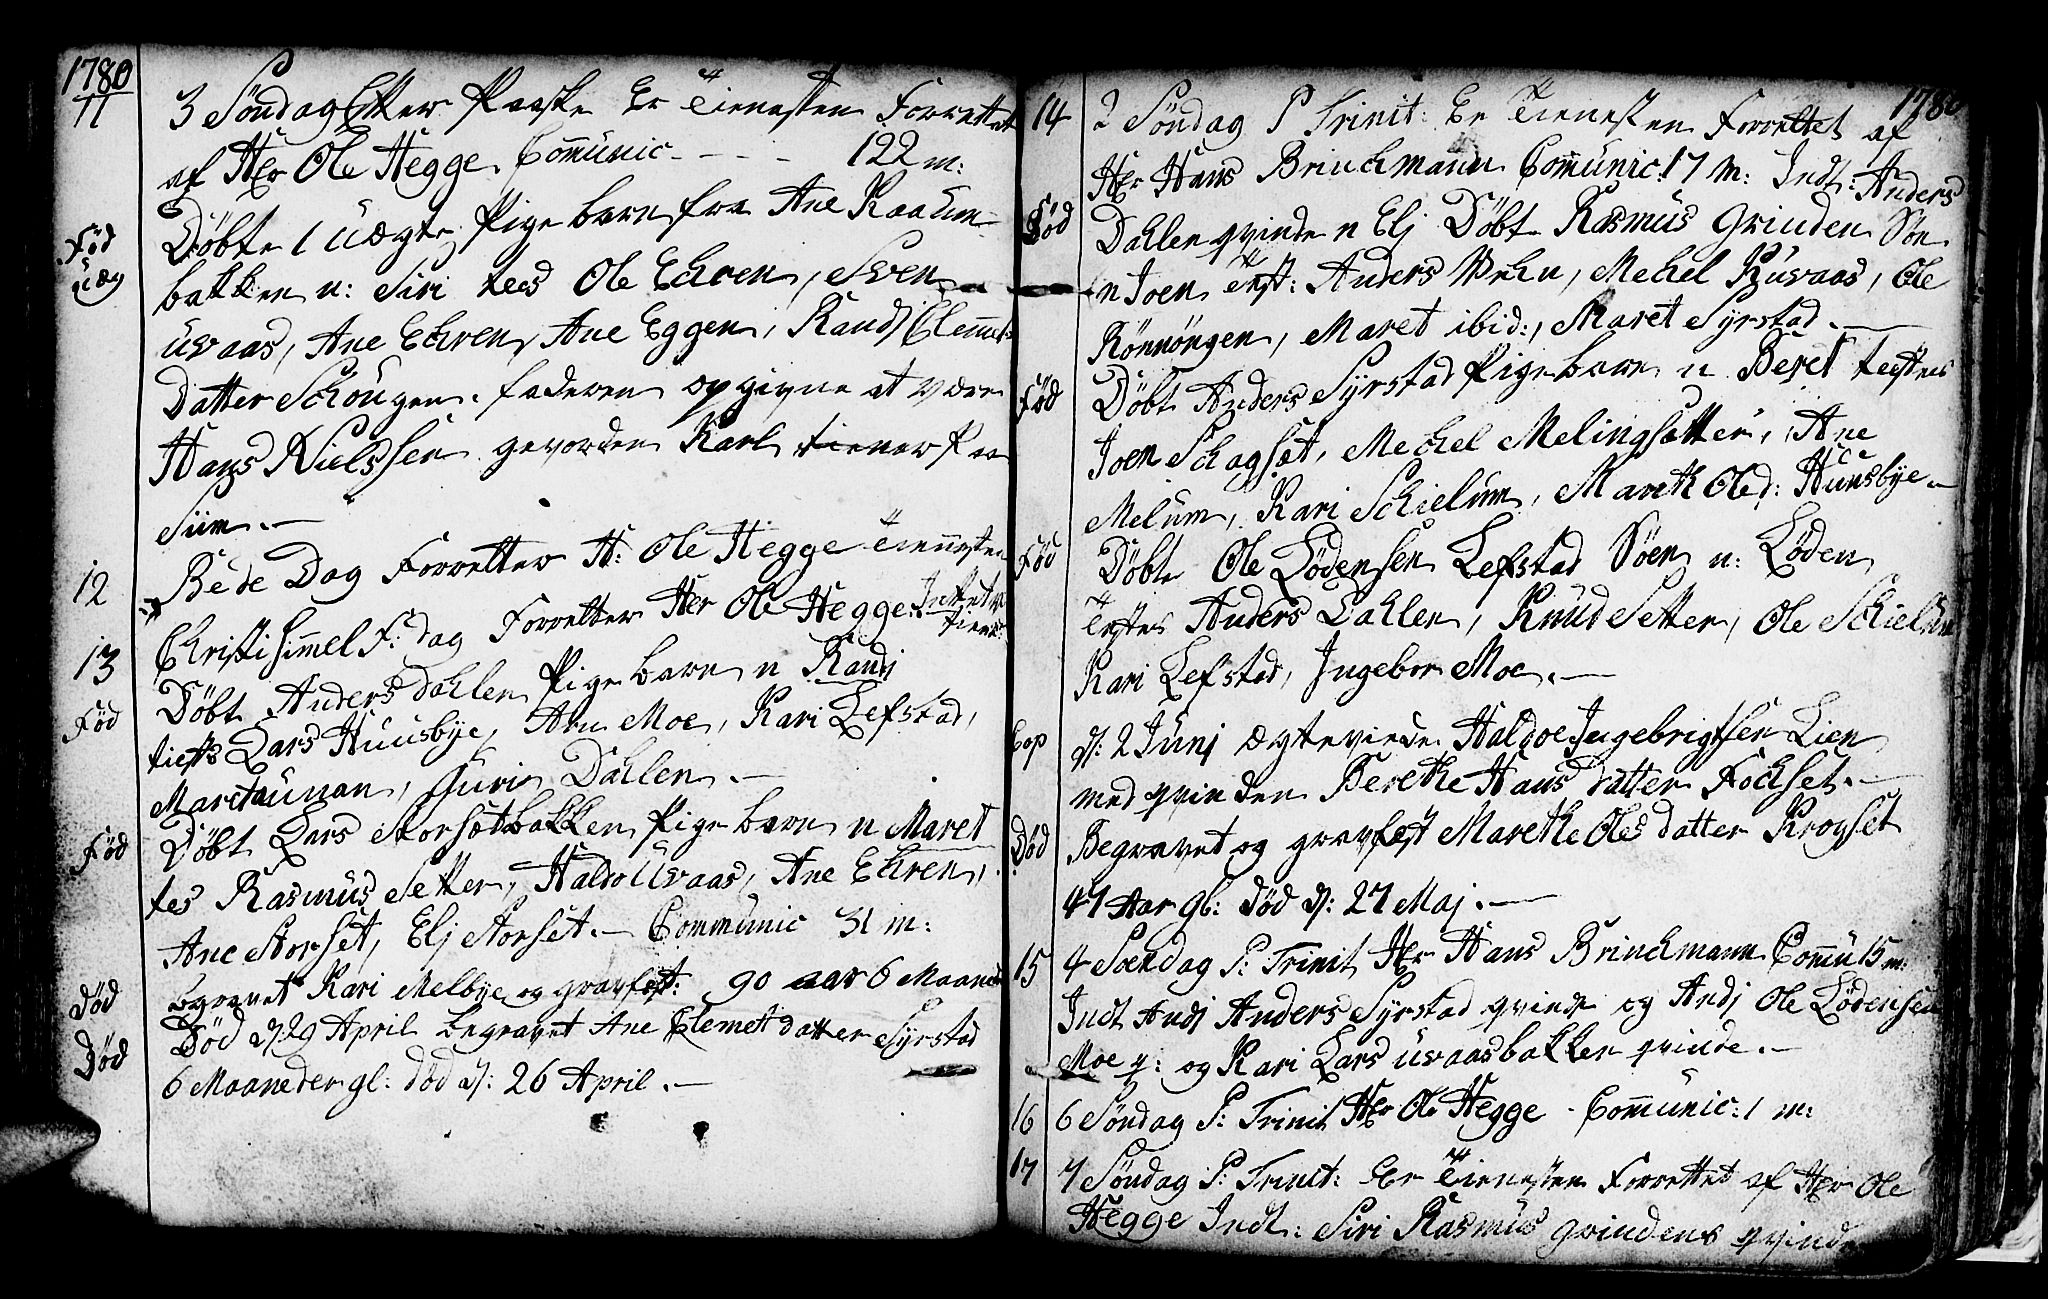 1780
11
3 Söndag Efter Paaske Er Tienesten Forrettet
af Hr Ole Hegge. Communic - - - - 122 m:
Död
Döbte 1 uægte Pige barn fra Ane Raaum
Föd
uæg
bakken n: Siri tes Ole Ehren, Sven
uvaas, Ane Ehren, Ane Eggen, Randj Clemmets
Datter Schougen. faderen opgivne at være
Hans Nielssen gevorden Karl tiener Paa
Siim.
12
Bede Dag Forretter H: Ole Hegge Tiennesten
13
Christi himmel F: dag Forretter Her Ole Hegge. Intet
Föd
Döbt Anders Dahlen Pige barn n Randj
tests Lars Huusbye, Arn Moe, Kari Lefstad,
Maret aunan, Guri Dahlen.
Föd
Döbt Lars Storsetbakken Pige barn n Maret
tes Rasmus Setter, Haldo Uvaas, Ane Ehren,
Ane Storset, Elj Storset. Communic 31 m:
Död
begravet Kari Melbye og gravfest: 90 aar 6 Maaneder
Död
Död d: 29 April begravet Ane Clemetdatter Syrstad
6 Maaneder gl: död d: 26 April.
1780
14
2 Söndag P Trinit: Er Tienesten Forrettet af
Hr Hans Brinchmann Communic: 17 m: Indl: Anders
Föd
Dahlen qvinde n Elj Döbt Rasmus Grinden Sön
n Joen test: Anders Mehu, Mechel Kusvaas, Ole
Rönnöngen, Maret ibid:, Maret Syrstad.
Föd
Döbt Anders Syrstad Pige barn n Beret testes
Joen Schogset, Mechel Melingsetter, Ane
Melum, Kari Schielum, Mareth Olsd: Huusbye.
Föd
Döbt Ole Lödensen Lefstad Söen n: Löden
Testes Anders Dahlen, Knud Setter, Ole Schielum
Kari Lefstad, Ingebor Moe.
Cop
d: 2 Junj ægteviede Haldoe Ingebrigtsen Lien
med qvinden Berethe Hans datter Fochset.
Död
Begravet og gravfest Marethe Oles datter Krogset
47 Aar gl: död d: 27 Maj.
15
4 Söendag P: Trinit Hr Hans Brinchmann Commu 15 m:
Indl Andj Anders Syrstad qvinde og Andj Ole Lödensen
Moe q: og Kari Lars uvaasbakken qvinde.
16
6 Söndag P: Trinit Hr Ole Hegge - Communic: 1 m:
17
7 Söndag P: Trinit: Er Tienesten Forrettet af Hr Ole
Hegge Indl: Siri Rasmus Grindens qvinde